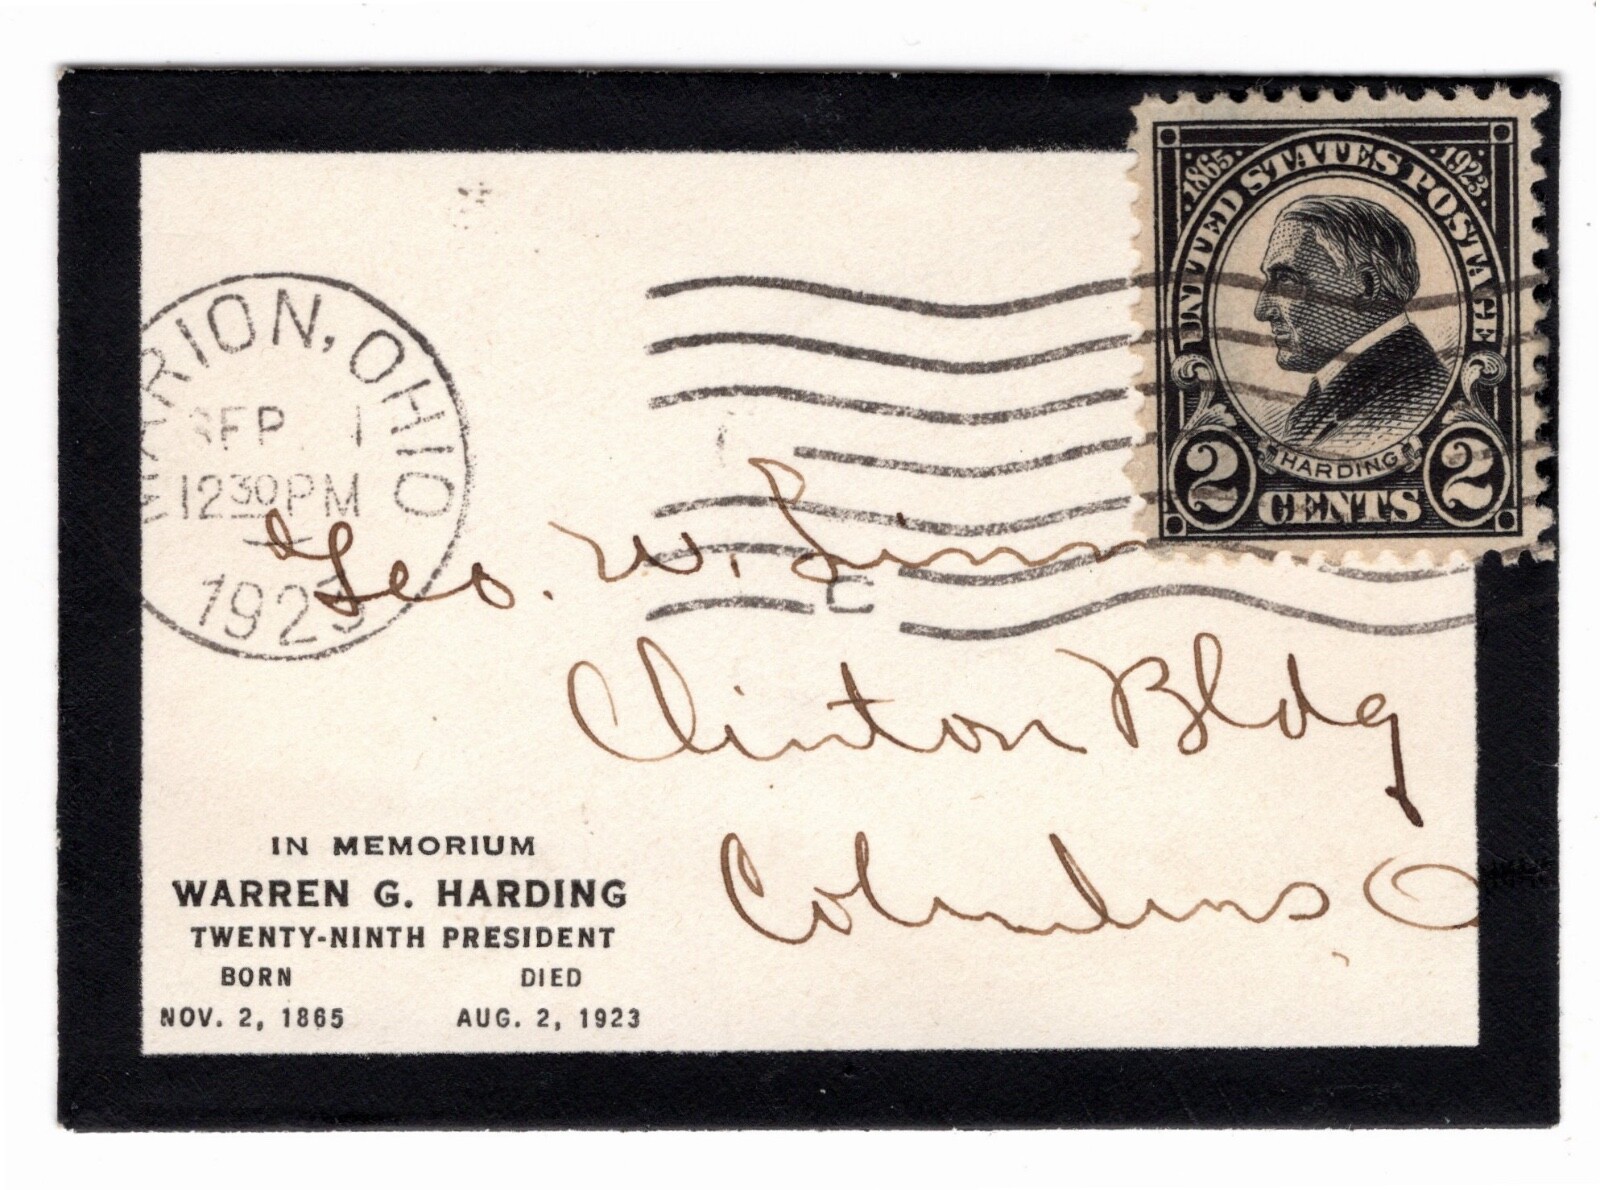 1865 1923
UNITED STATES POSTAGE
HARDING
2 CENTS 2
MARION, OHIO
SEP 1
12 30 PM
1923
Geo. W. Linn
Clinton Bldg
Columbus, O
IN MEMORIUM
WARREN G. HARDING
TWENTY-NINTH PRESIDENT
BORN DIED
NOV. 2, 1865 AUG. 2, 1923